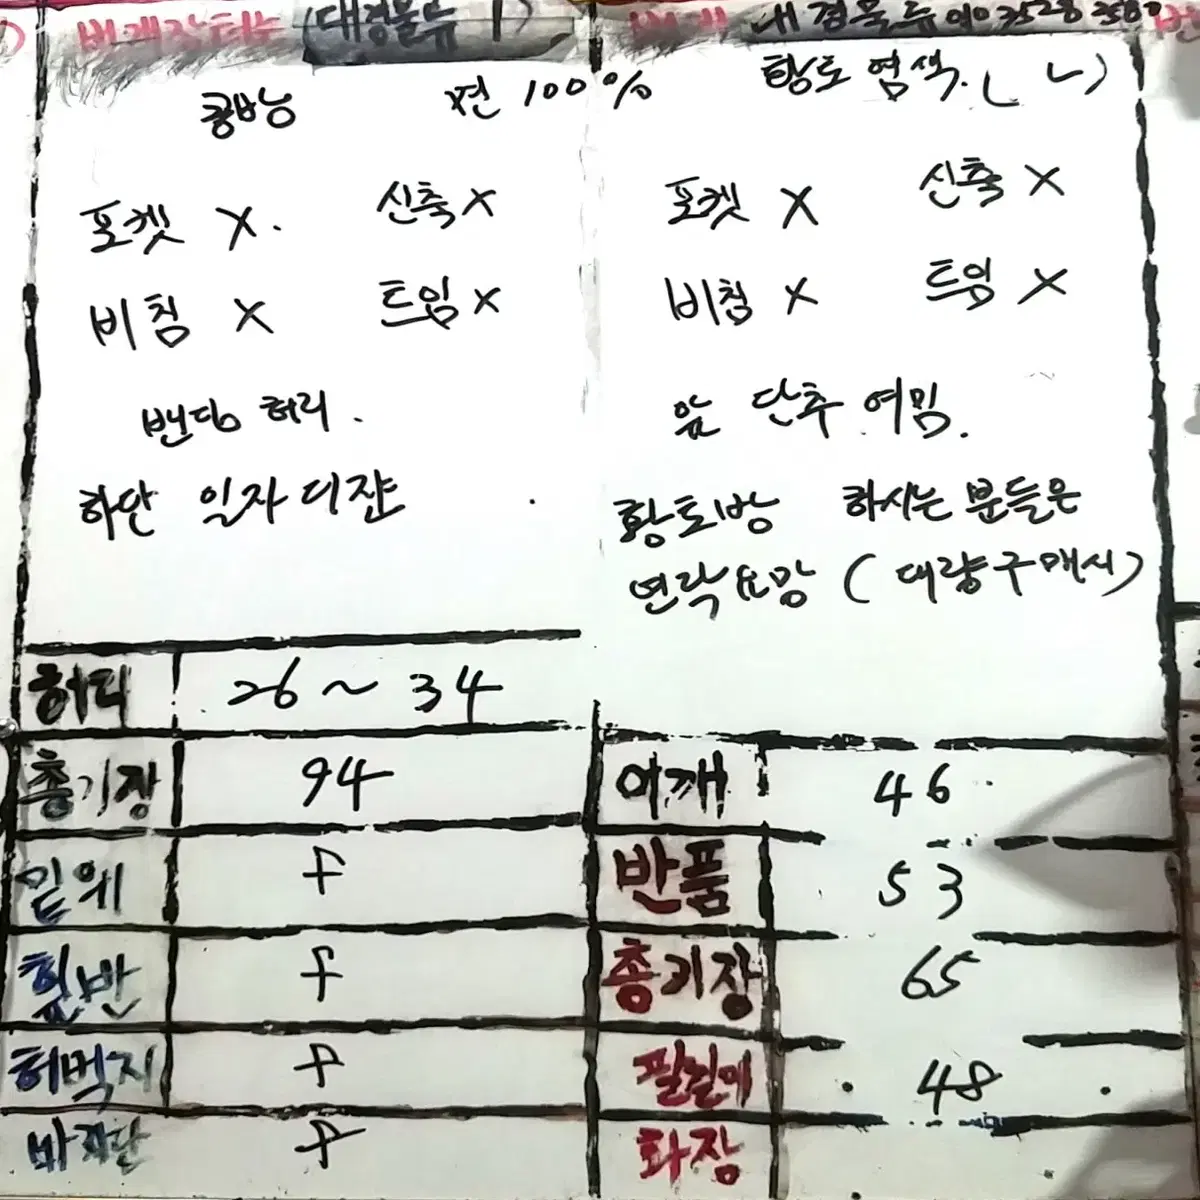 번개장터 (대경물류)
쿵방
포켓 X. 신축 X
비침 X 트임 X
밴딩 허리.
하단 일자 디쟌
허리 26 ~ 34
총기장 94
밑위 F
힙반 F
허벅지 F
바지단 F
번개 대경물류
면 100% 황토 염색. ( ㄴ)
포켓 X 신축 X
비침 X 트임 X
앞 단추 여밈.
황토방 하시는 분들은
연락요망 ( 대량구매시)
어깨 46
반품 53
총기장 65
팔길이 48
화장